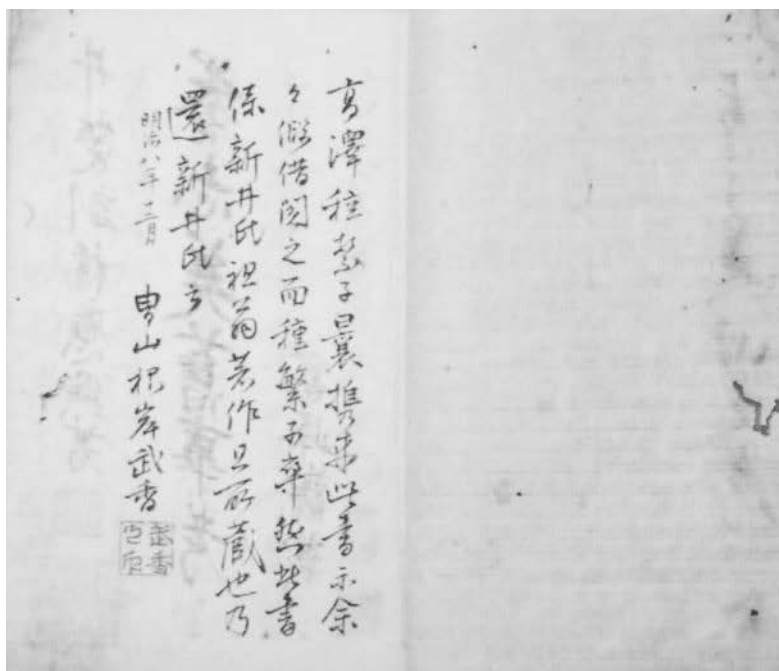 高澤種繁子曩携来此書示余
々假借閲之而種繁子卒然此書
係新井氏祖翁著作且所蔵也乃
還新井氏云
明治八年十二月
冑山根岸武香
武香